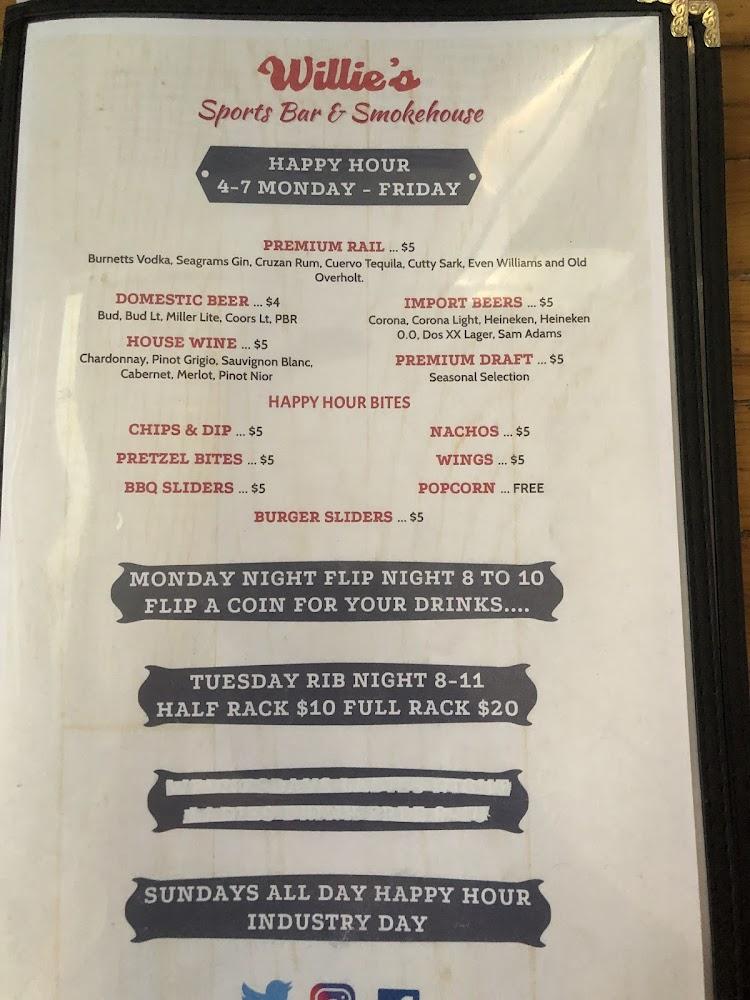 Willie's
Sports Bar & Smokehouse
HAPPY HOUR
4-7 MONDAY - FRIDAY
PREMIUM RAIL ... $5
Burnetts Vodka, Seagrams Gin, Cruzan Rum, Cuervo Tequila, Cutty Sark, Even Williams and Old
Overholt.
DOMESTIC BEER ... $4
Bud, Bud Lt, Miller Lite, Coors Lt, PBR
HOUSE WINE ... $5
Chardonnay, Pinot Grigio, Sauvignon Blanc,
Cabernet, Merlot, Pinot Nior
IMPORT BEERS ... $5
Corona, Corona Light, Heineken, Heineken
0.0, Dos XX Lager, Sam Adams
PREMIUM DRAFT ... $5
Seasonal Selection
HAPPY HOUR BITES
CHIPS & DIP ... $5
NACHOS ... $5
PRETZEL BITES ... $5
WINGS ... $5
BBQ SLIDERS ... $5
POPCORN ... FREE
BURGER SLIDERS ... $5
MONDAY NIGHT FLIP NIGHT 8 TO 10
FLIP A COIN FOR YOUR DRINKS....
TUESDAY RIB NIGHT 8-11
HALF RACK $10 FULL RACK $20
SUNDAYS ALL DAY HAPPY HOUR
INDUSTRY DAY